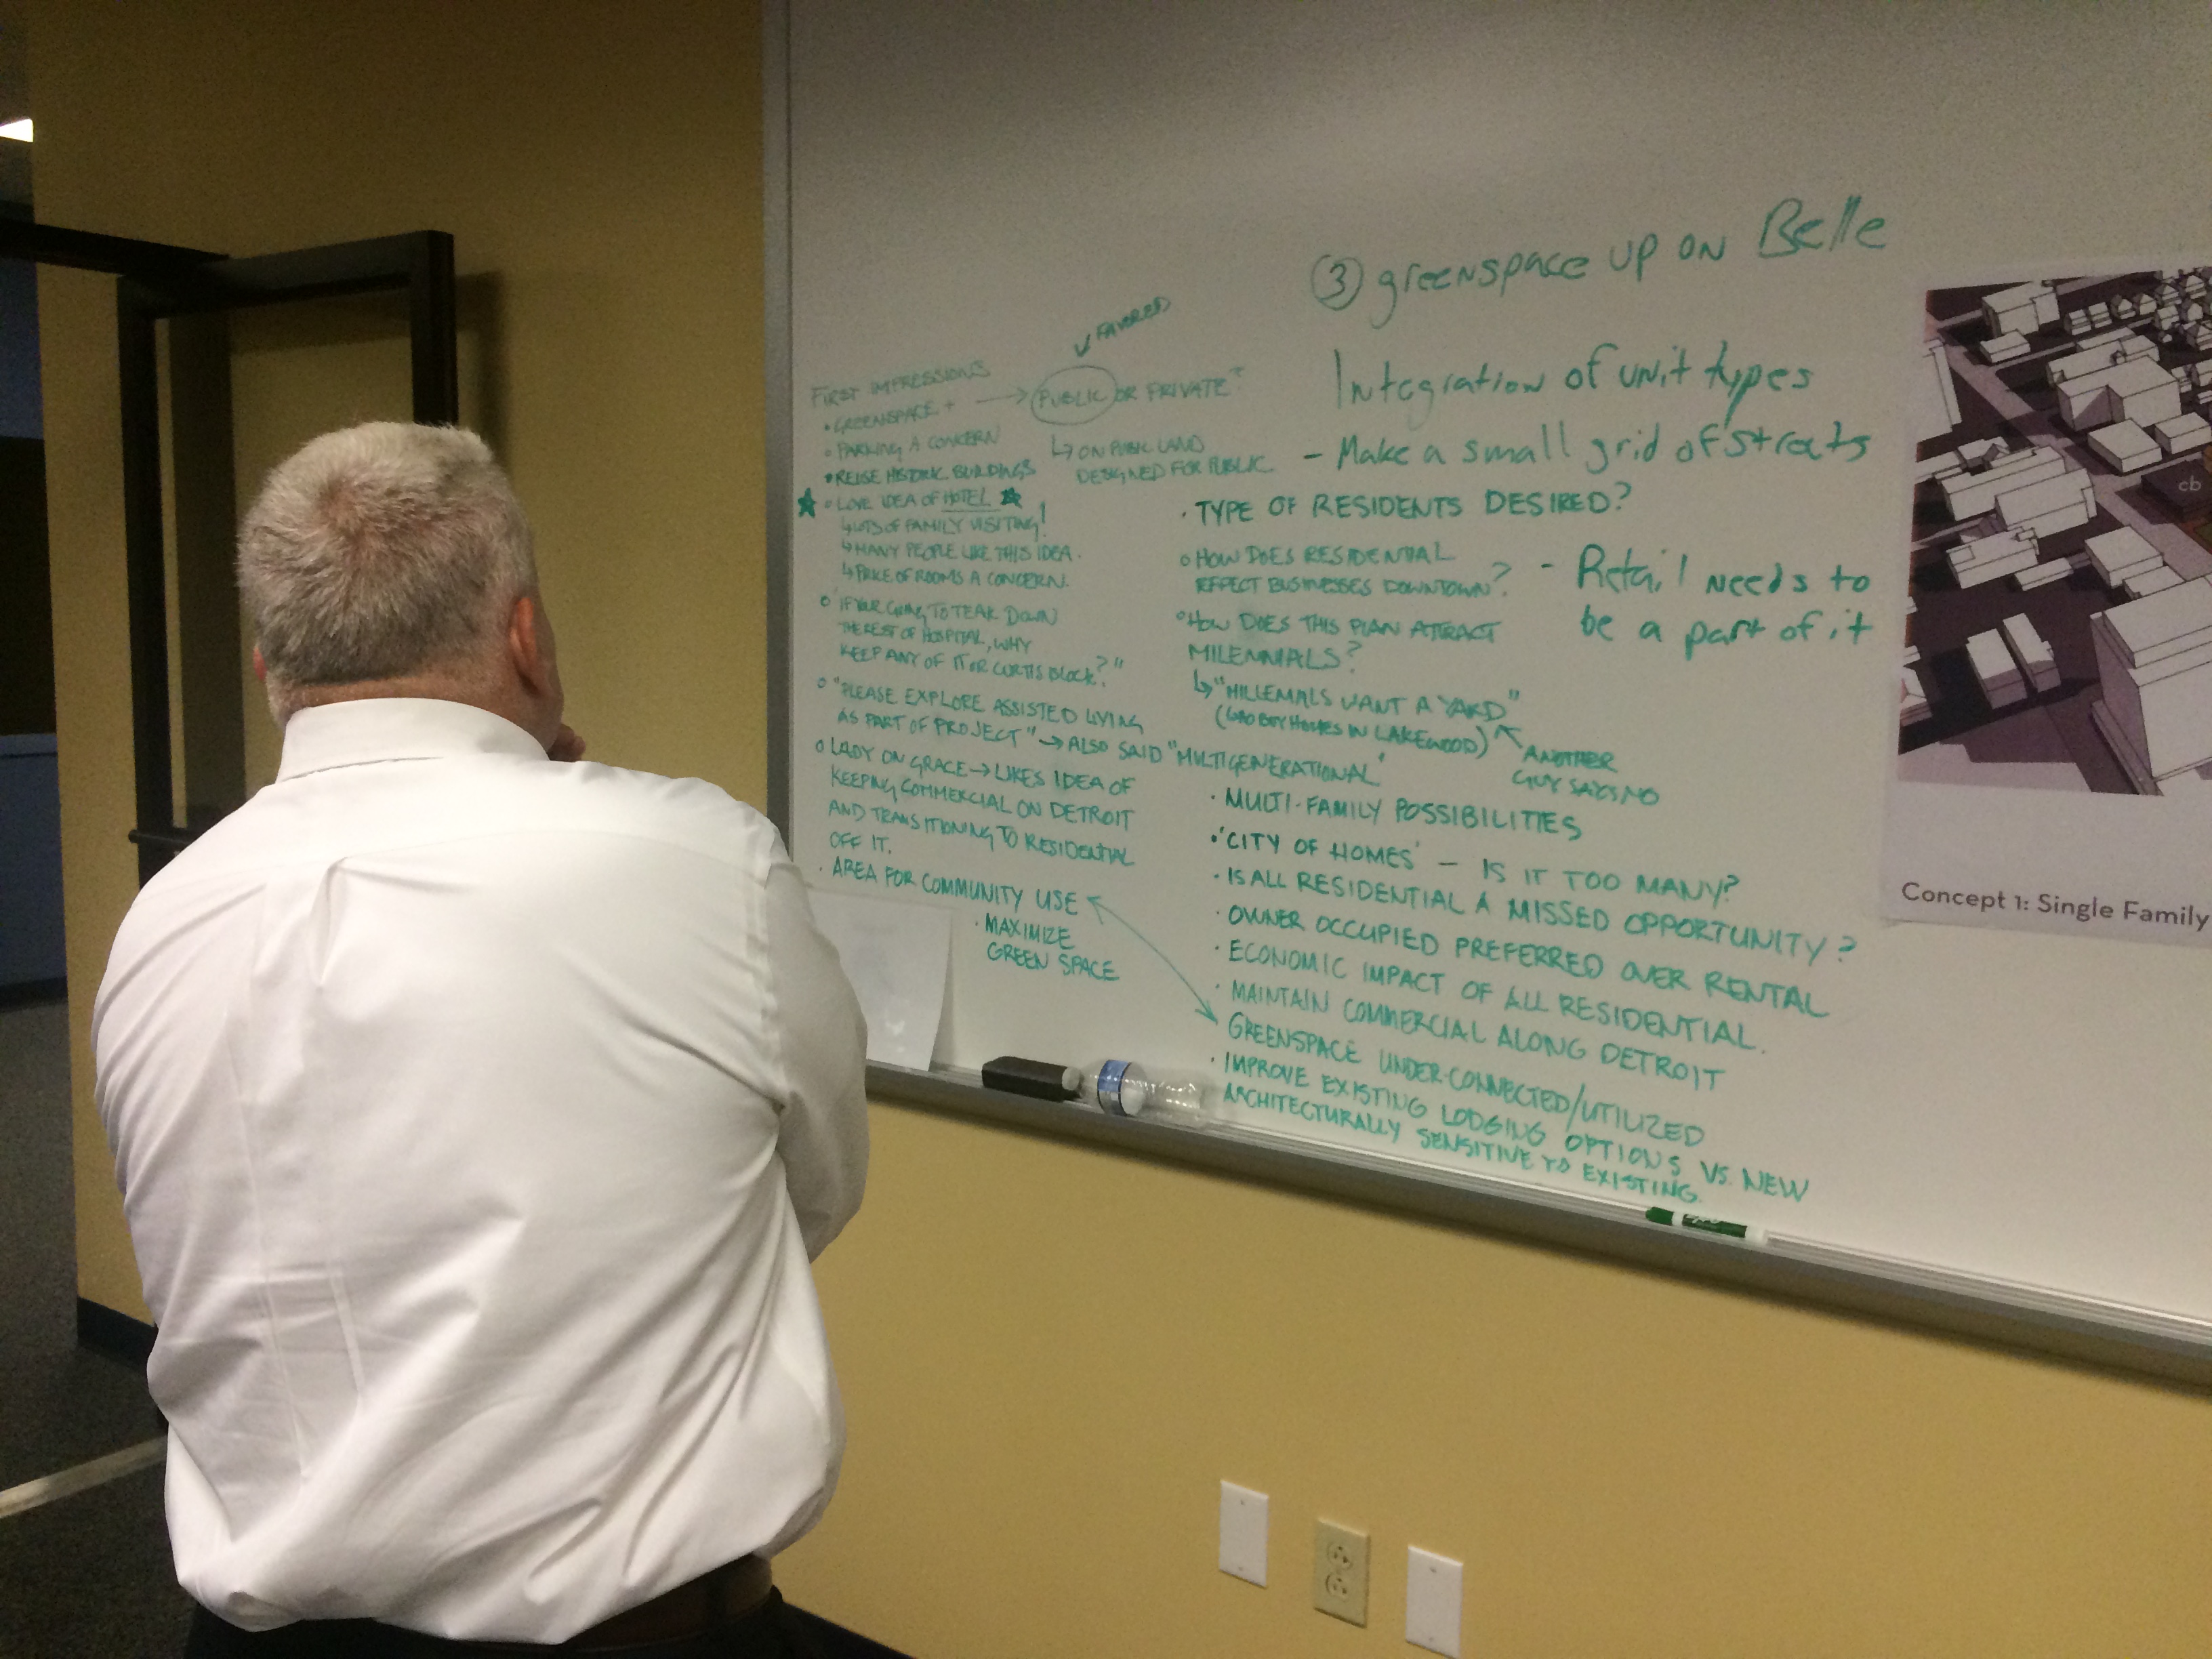 ③ greenspace up on Belle
Integration of unit types
- Make a small grid of streets
- Retail needs to
be a part of it
FAVORED
FIRST IMPRESSIONS
• GREENSPACE + → PUBLIC OR PRIVATE?
↳ ON PUBLIC LAND
DESIGNED FOR PUBLIC
• PARKING A CONCERN
• REUSE HISTORIC BUILDINGS
★ • LOVE IDEA OF HOTEL ★
↳ LOTS OF FAMILY VISITING!
↳ MANY PEOPLE LIKE THIS IDEA.
↳ PRICE OF ROOMS A CONCERN.
• "IF YOUR GOING TO TEAR DOWN
THE REST OF HOSPITAL, WHY
KEEP ANY OF IT OR CURTIS BLOCK?"
• "PLEASE EXPLORE ASSISTED LIVING
AS PART OF PROJECT" → ALSO SAID "MULTIGENERATIONAL"
• LADY ON GRACE → LIKES IDEA OF
KEEPING COMMERCIAL ON DETROIT
AND TRANSITIONING TO RESIDENTIAL
OFF IT.
• AREA FOR COMMUNITY USE
• MAXIMIZE
GREEN SPACE
• TYPE OF RESIDENTS DESIRED?
• HOW DOES RESIDENTIAL
EFFECT BUSINESSES DOWNTOWN?
• HOW DOES THIS PLAN ATTRACT
MILENNIALS?
↳ "MILLENIALS WANT A YARD"
HOMES IN LAKEWOOD)
ANOTHER
GUY SAYS NO
• MULTI-FAMILY POSSIBILITIES
• 'CITY OF HOMES' - IS IT TOO MANY?
• IS ALL RESIDENTIAL A MISSED OPPORTUNITY?
• OWNER OCCUPIED PREFERRED OVER RENTAL
• ECONOMIC IMPACT OF ALL RESIDENTIAL.
• MAINTAIN COMMERCIAL ALONG DETROIT
GREENSPACE UNDER-CONNECTED/UTILIZED
• IMPROVE EXISTING LODGING OPTIONS VS. NEW
ARCHITECTURALLY SENSITIVE TO EXISTING.
cb
Concept 1: Single Family